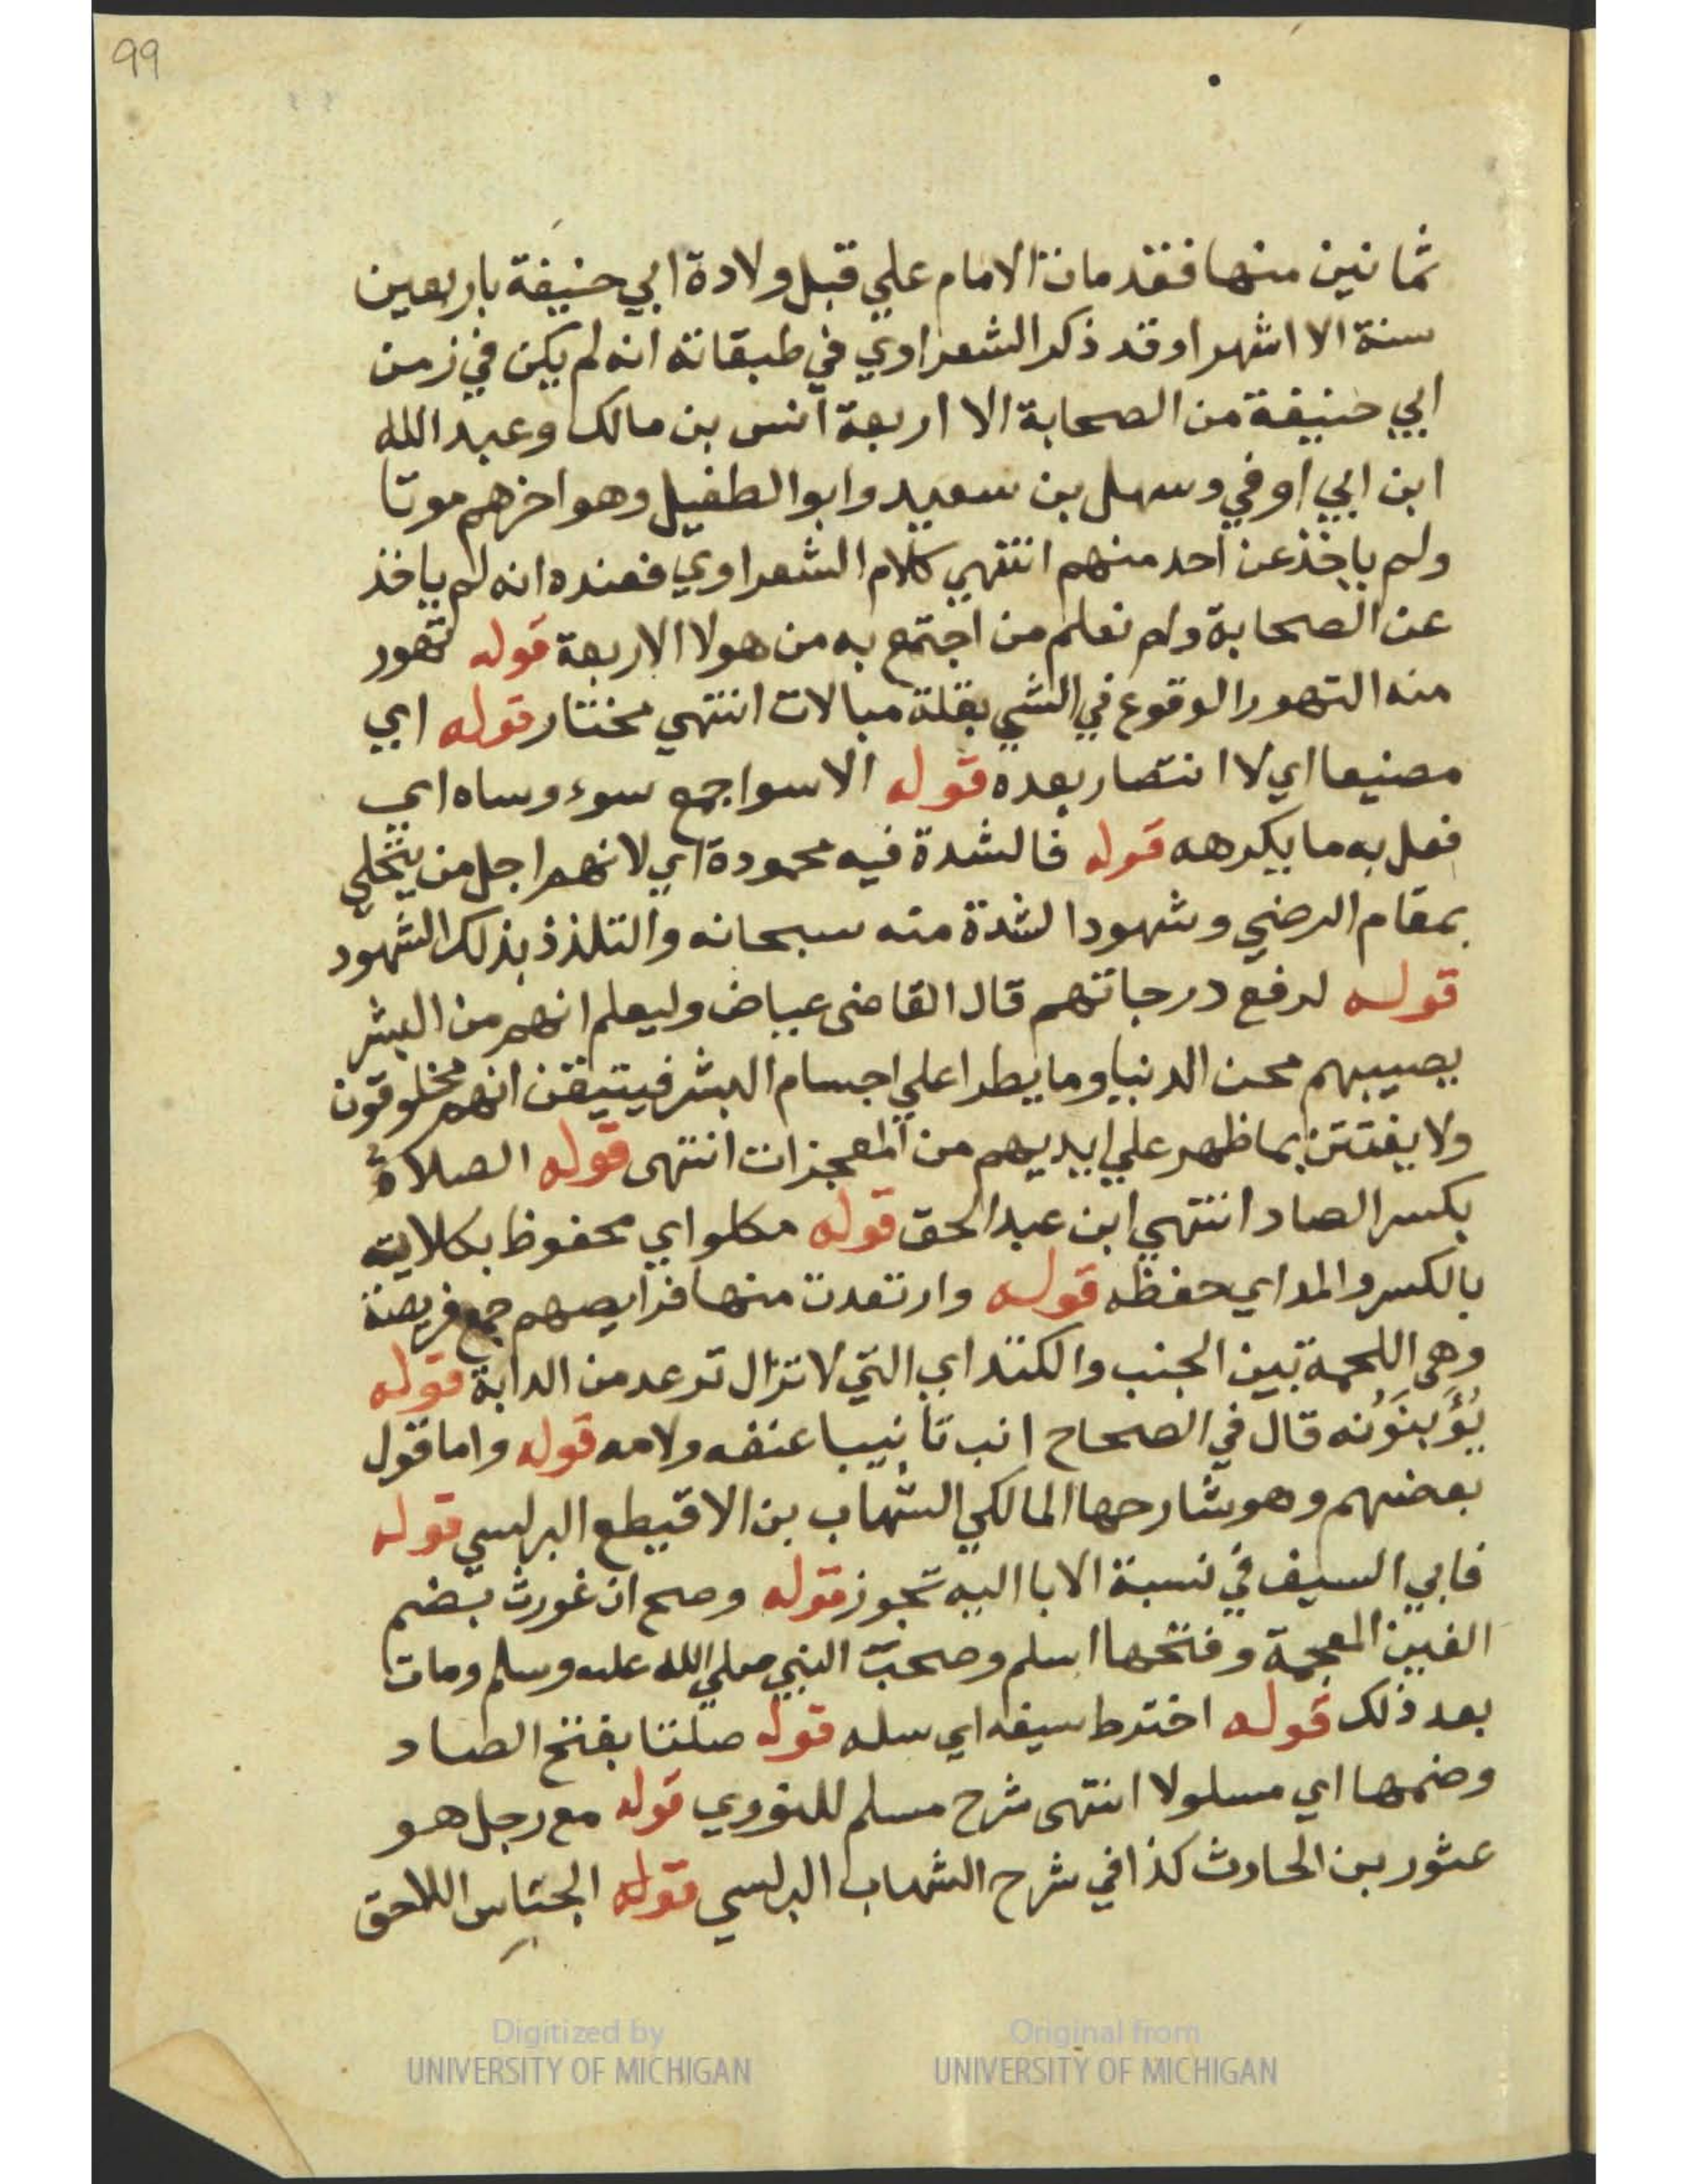 99
ثمانين منها فقد مات الامام علي قبل ولادة ابي حنيفة باربعين
سنة الا اشهرا وقد ذكر الشعراوي في طبقاته انه لم يكن في زمن
ابي حنيفة من الصحابة الا اربعة انس بن مالك وعبد الله
ابن ابي اوفي وسهل بن سعيد وابو الطفيل وهو اخرهم موتا
ولم ياخذ عن احد منهم انتهي كلام الشعراوي فعنده انه لم ياخذ
عن الصحابة ولم نعلم من اجتمع به من هولا الاربعة قوله تهور
منه التهور الوقوع في الشي بقلة مبالات انتهي مختار قوله اي
مصنيعا اي لا انتصار بعده قوله الاسوا جمع سوء وساه اي
فعل به ما يكرهه قوله فالشدة فيه محمودة اي لانهم اجل من يتحلي
بمقام الرضي وشهود الشدة منه سبحانه والتلذذ بذلك الشهود
قوله لرفع درجاتهم قال القاضى عياض وليعلم انهم من البشر
يصيبهم محن الدنيا وما يطرا علي اجسام البشر فيتيقن انهم مخلوقون
ولا يفتتن بما ظهر علي ايديهم من المعجزات انتهى قوله الصلاة
بكسر الصاد انتهي ابن عبد الحق قوله مكلوا اي محفوظ بكلايته
بالكسر والمد اي حفظه قوله وارتعدت منها فرايصهم جمع فريصة
وهي اللحمة بين الجنب والكتد اي التي لا تزال ترعد من الدابة قوله
يُؤَبنَوُنه قال في الصحاح انب تانيبا عنفه ولامه قوله واما قول
بعضهم وهو شارحها المالكي الشهاب بن الاقيطع البرلسي قوله
فابي السيف في نسبة الابا اليه تجوز قوله وصح ان غورث بضم
الغين المعجمة وفتحها اسلم وصحب النبي صلي الله عليه وسلم ومات
بعد ذلك قوله اخترط سيفه اي سله قوله صلتا بفتح الصاد
وضمها اي مسلولا انتهى شرح مسلم للنووي قوله مع رجل هو
عثور بن الحادث كذا في شرح الشهاب البرلسي قوله الجناس اللاحق
Digitized by
UNIVERSITY OF MICHIGAN
Original from
UNIVERSITY OF MICHIGAN